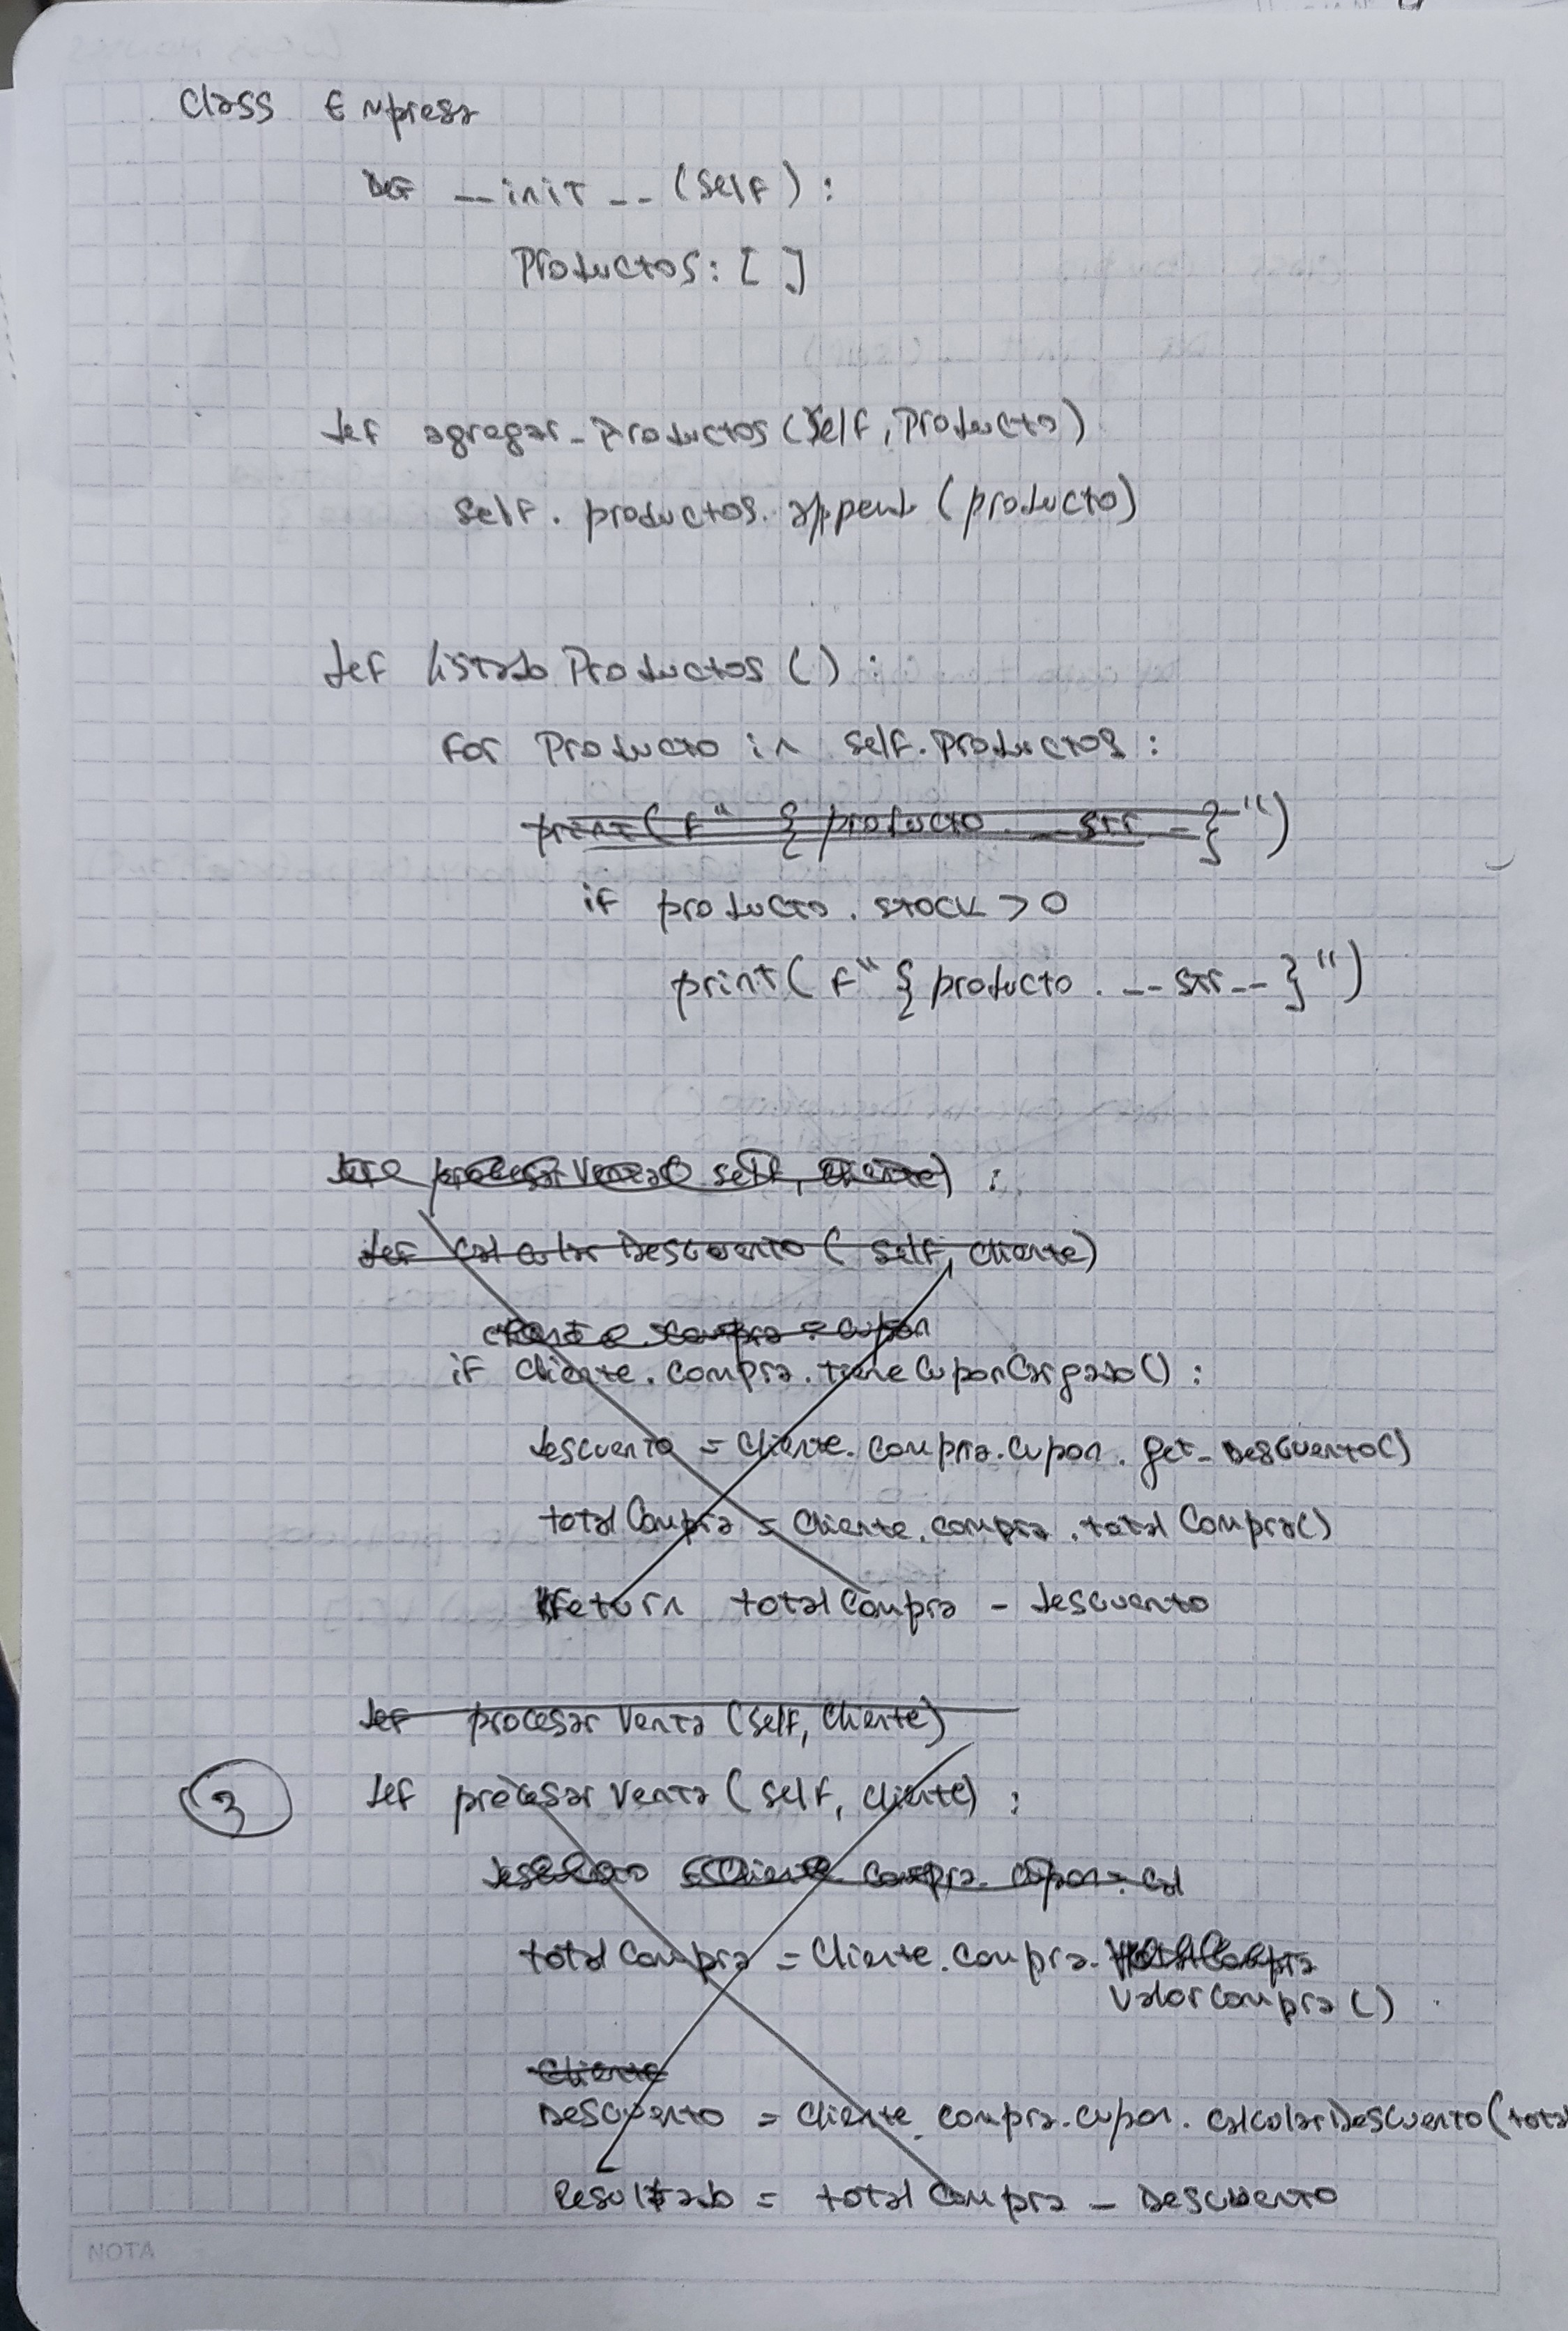 Class Empresa
Def __init__(self):
Productos: []
def agregar_Productos(self, Producto)
self.productos.append(producto)
def listadoProductos():
For Producto in self.productos:
print(F" {producto.__str__}")
if producto.stock > 0
print(F"{producto.__str__}")
def procesarVenta(self, cliente):
def calcularDescuento(self, cliente)
cliente.compra = cupon
if cliente.compra.tieneCuponCargado():
descuento = cliente.compra.cupon.get_Descuento()
totalCompra = cliente.compra.totalCompra()
return totalCompra - descuento
def procesarVenta(self, cliente)
3 def procesarVenta(self, cliente):
cliente compra. cupon = cal
totalCompra = cliente.compra. totalCompra
valorCompra()
Cliente
Descuento = cliente.compra.cupon.calcularDescuento(total
Resultado = totalCompra - Descuento
NOTA